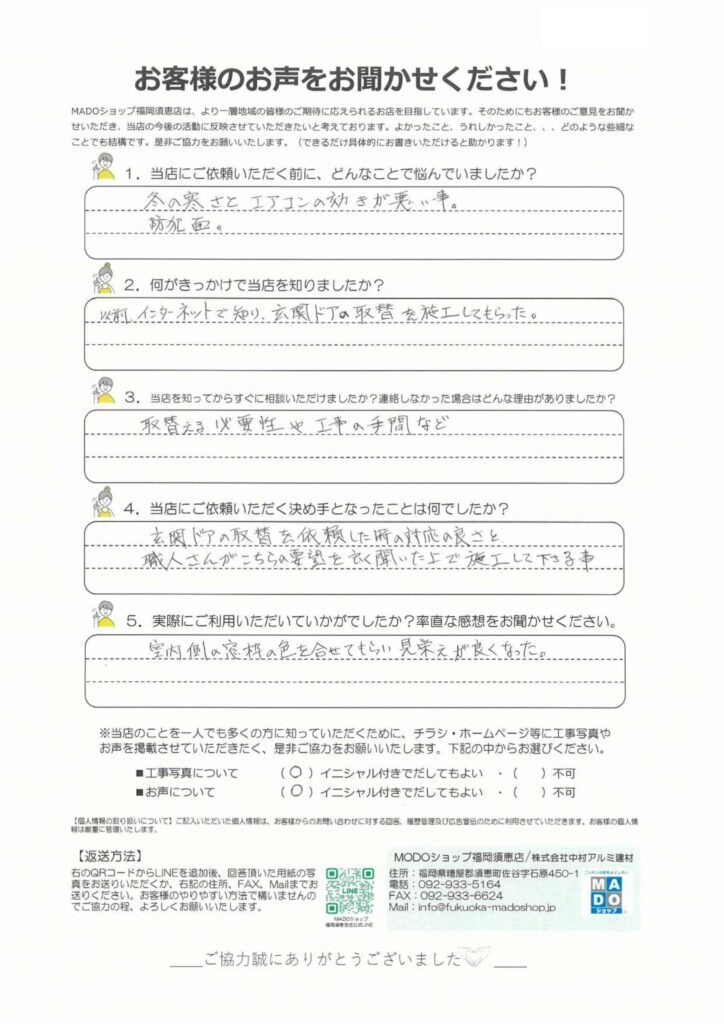 お客様のお声をお聞かせください！
MADOショップ福岡須恵店は、より一層地域の皆様のご期待に応えられるお店を目指しています。そのためにもお客様のご意見をお聞か
せいただき、当店の今後の活動に反映させていただきたいと考えております。よかったこと、うれしかったこと、、、どのような些細な
ことでも結構です。是非ご協力をお願いいたします。（できるだけ具体的にお書きいただけると助かります！）
1．当店にご依頼いただく前に、どんなことで悩んでいましたか？
冬の寒さと エアコンの効きが悪い事。
防犯面。
2．何がきっかけで当店を知りましたか？
以前 インターネットで知り、玄関ドアの取替を施工してもらった。
3．当店を知ってからすぐに相談いただけましたか？連絡しなかった場合はどんな理由がありましたか？
取替える必要性や工事の手間など
4．当店にご依頼いただく決め手となったことは何でしたか？
玄関ドアの取替を依頼した時の対応の良さと
職人さんがこちらの要望を良く聞いた上で施工して下さる事
5．実際にご利用いただいていかがでしたか？率直な感想をお聞かせください。
室内側の窓枠の色を合せてもらい見栄えが良くなった。
※当店のことを一人でも多くの方に知っていただくために、チラシ・ホームページ等に工事写真や
お声を掲載させていただきたく、是非ご協力をお願いいたします。下記の中からお選びください。
■工事写真について （○）イニシャル付きでだしてもよい ・（ ）不可
■お声について （○）イニシャル付きでだしてもよい ・（ ）不可
【個人情報の取り扱いについて】ご記入いただいた個人情報は、お客様からのお問い合わせに対する回答、履歴管理及び広告宣伝のために利用させていただきます。お客様の個人情
報は厳重に管理いたします。
【返送方法】
右のQRコードからLINEを追加後、回答頂いた用紙の写
真をお送りいただくか、右記の住所、FAX、Mailまでお
送りください。お客様のやりやすい方法で構いませんの
でご協力の程、よろしくお願いいたします。
LINE
MADOショップ
福岡須恵店公式LINE
MODOショップ福岡須恵店/株式会社中村アルミ建材
住所：福岡県糟屋郡須恵町佐谷字石原450-1
電話：092-933-5164
FAX：092-933-6624
Mail：info@fukuoka-madoshop.jp
MADO
ショップ
____ご協力誠にありがとうございました____